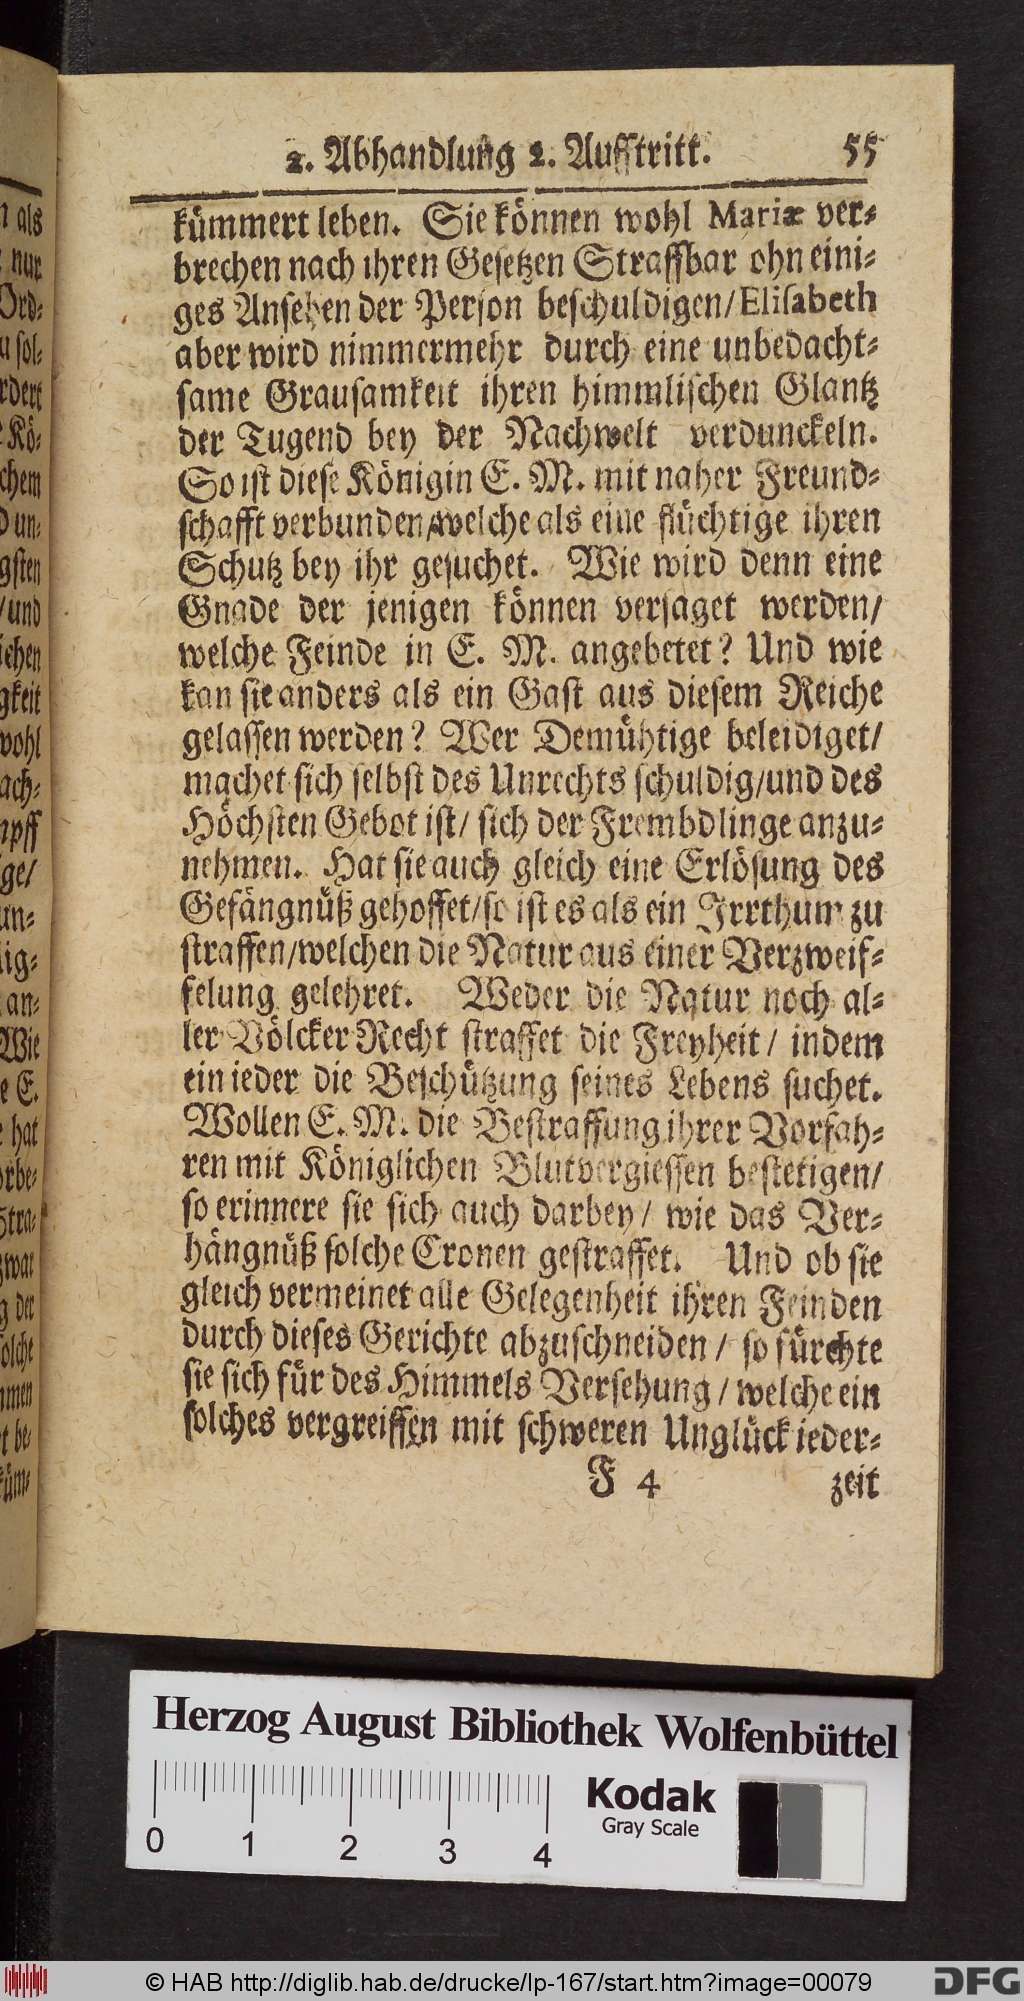 2. Abhandlung 2. Aufftritt. 55
kümmert leben. Sie können wohl Mariæ ver-
brechen nach ihren Gesetzen Straffbar ohn eini-
ges Ansehen der Person beschuldigen/Elisabeth
aber wird nimmermehr durch eine unbedacht-
same Grausamkeit ihren himmlischen Glantz
der Tugend bey der Nachwelt verdunckeln.
So ist diese Königin E. M. mit naher Freund-
schafft verbunden/welche als eine flüchtige ihren
Schutz bey ihr gesuchet. Wie wird denn eine
Gnade der jenigen können versaget werden/
welche Feinde in E. M. angebetet? Und wie
kan sie anders als ein Gast aus diesem Reiche
gelassen werden? Wer Demühtige beleidiget/
machet sich selbst des Unrechts schuldig/und des
Höchsten Gebot ist/ sich der Frembdlinge anzu-
nehmen. Hat sie auch gleich eine Erlösung des
Gefängnüß gehoffet/so ist es als ein Irrthum zu
straffen/welchen die Natur aus einer Verzweif-
felung gelehret. Weder die Natur noch al-
ler Völcker Recht straffet die Freyheit / indem
ein ieder die Beschützung seines Lebens suchet.
Wollen E. M. die Bestraffung ihrer Vorfah-
ren mit Königlichen Blutvergiessen bestetigen/
so erinnere sie sich auch darbey / wie das Ver-
hängnüß solche Cronen gestraffet. Und ob sie
gleich vermeinet alle Gelegenheit ihren Feinden
durch dieses Gerichte abzuschneiden / so fürchte
sie sich für des Himmels Versehung / welche ein
solches vergreiffen mit schweren Unglück ieder-
F 4 zeit
n als
nur
Ord-
u sol-
rdert
Kö-
chem
d un-
gsten
/und
iehen
gkeit
wohl
ach-
mpff
ge/
un-
lig-
an-
Wie
e E.
hat
orbe-
Stra-
zwar
g der
olche
mmen
t be-
küm-
Herzog August Bibliothek Wolfenbüttel
Kodak
Gray Scale
0 1 2 3 4
© HAB http://diglib.hab.de/drucke/lp-167/start.htm?image=00079
DFG